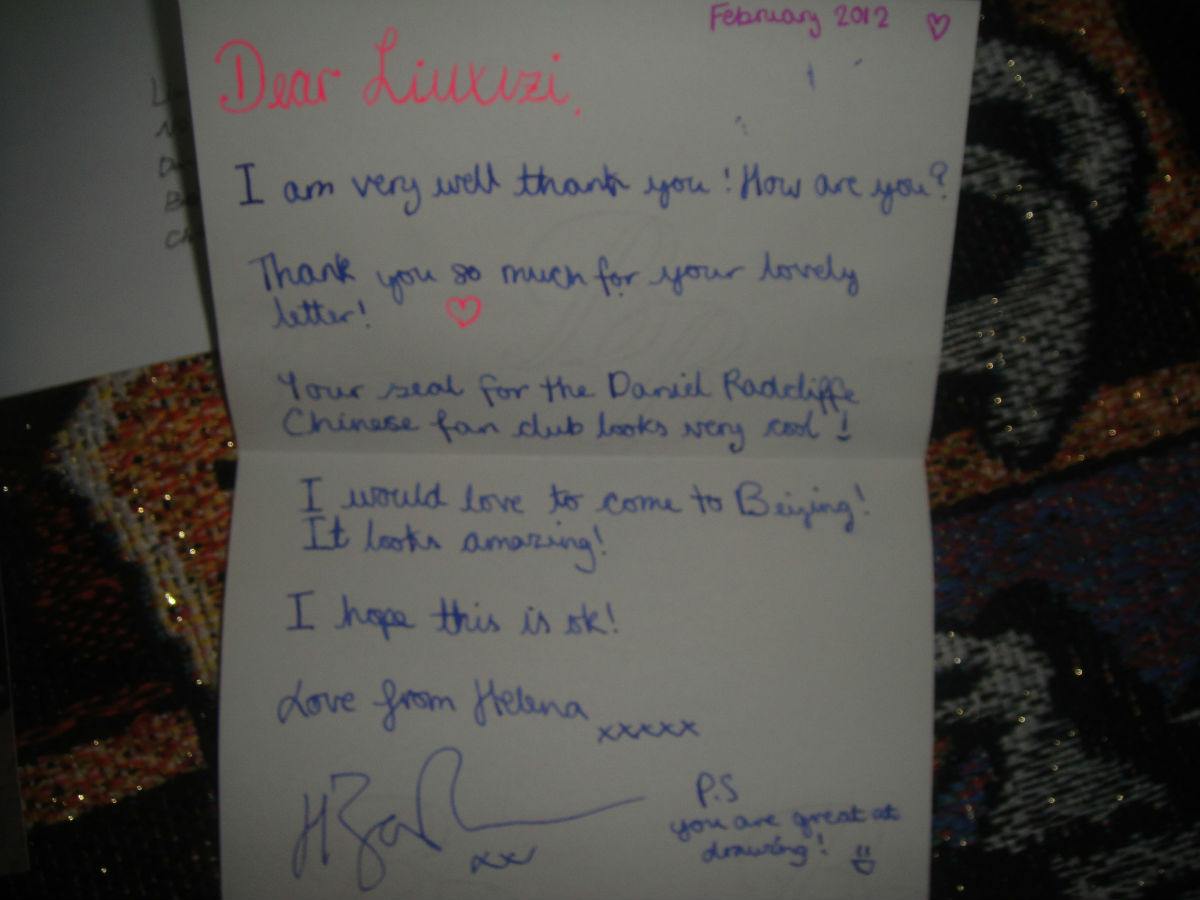 February 2012 ♡
Dear Liuxizi.
I am very well thank you! How are you?
Thank you so much for your lovely
letter! ♡
Your seal for the Daniel Radcliffe
Chinese fan club looks very cool!
I would love to come to Beijing!
It looks amazing!
I hope this is ok!
Love from Helena
xxxxx
xx
P.S
you are great at
drawing!